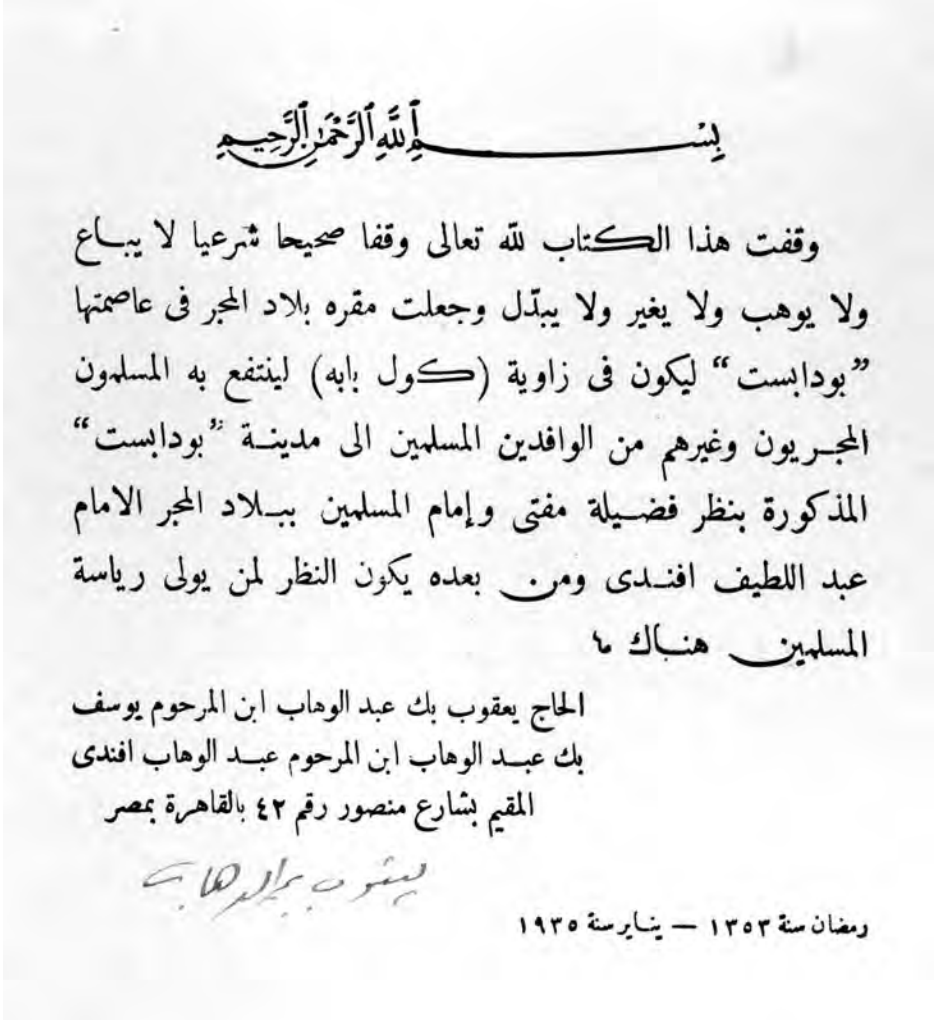 بِسْمِ ٱللَّهِ ٱلرَّحْمَٰنِ ٱلرَّحِيمِ
وقفت هذا الكتاب لله تعالى وقفا صحيحا شرعيا لا يباع
ولا يوهب ولا يغير ولا يبدّل وجعلت مقره بلاد المجر فى عاصمتها
”بودابست“ ليكون فى زاوية (كول بابه) لينتفع به المسلمون
المجريون وغيرهم من الوافدين المسلمين الى مدينة ”بودابست“
المذكورة بنظر فضيلة مفتى وإمام المسلمين ببلاد المجر الامام
عبد اللطيف افندى ومن بعده يكون النظر لمن يولى رياسة
المسلمين هناك
الحاج يعقوب بك عبد الوهاب ابن المرحوم يوسف
بك عبد الوهاب ابن المرحوم عبد الوهاب افندى
المقيم بشارع منصور رقم ٤٢ بالقاهرة بمصر
يعقوب عبد الوهاب
رمضان سنة ١٣٥٣ — يناير سنة ١٩٣٥